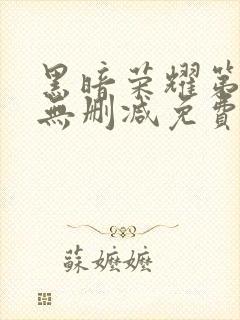 黑暗荣耀第
無删减免費
蘇嬤嬤